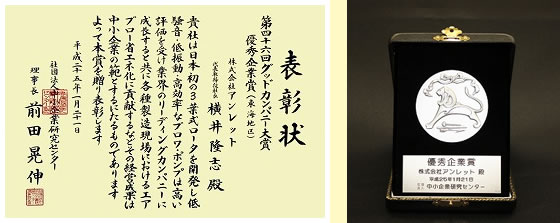 表彰状
第四十六回グッドカンパニー大賞
優秀企業賞(東海地区)
株式会社アンレット
代表取締役社長 横井隆志 殿
貴社は日本初の3葉式ロータを開発し低
騒音・低振動・高効率なブロワ、ポンプは高い
評価を受け業界のリーディングカンパニーに
成長すると共に各種製造現場におけるエア
ブロー省エネ化に貢献するなどその経営成果は
中小企業の範とするにたるものであります
よって本賞を贈り表彰します
平成二十五年一月二十一日
社団法人中小企業研究センター
理事長 前田晃伸
優秀企業賞
株式会社アンレット 殿
平成25年1月21日
中小企業研究センター